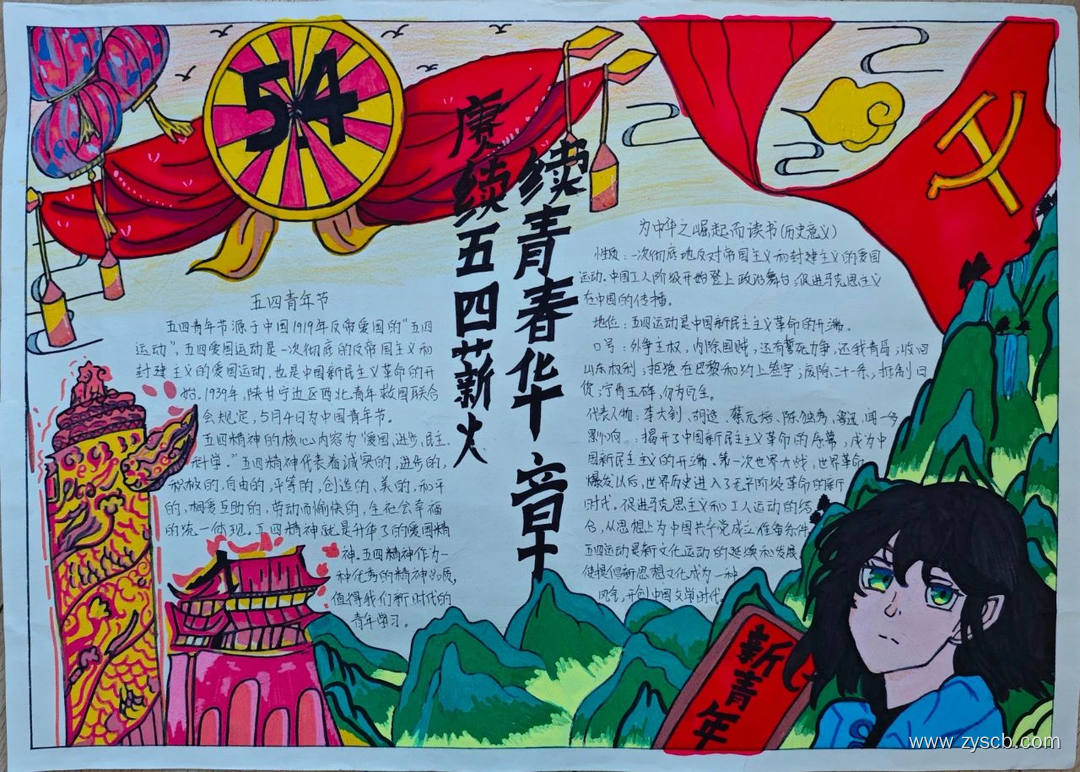 54
赓续五四薪火
续青春华章
五四青年节
五四青年节源于中国1919年反帝爱国的“五四
运动”,五四爱国运动是一次彻底的反帝国主义和
封建主义的爱国运动,也是中国新民主主义革命的开
始。1939年,陕甘宁边区西北青年救国联合
会规定,5月4日为中国青年节。
五四精神的核心内容为“爱国,进步,民主,
科学。”五四精神代表着诚实的,进步的,
积极的,自由的,平等的,创造的,美的,和平
的,相爱互助的,劳动而愉快的,全社会幸福
的统一体现。五四精神就是升华了的爱国精
神。五四精神作为一
种优秀的精神品质,
值得我们新时代的
青年学习。
为中华之崛起而读书(历史意义)
性质:一次彻底地反对帝国主义和封建主义的爱国
运动。中国工人阶级开始登上政治舞台,促进马克思主义
在中国的传播。
地位:五四运动是中国新民主主义革命的开端。
口号:外争主权,内除国贼,还有誓死力争,还我青岛,收回
山东权利,拒绝在巴黎和约上签字,废除二十一条,抵制日
货,宁肯玉碎,何为瓦全。
代表人物:李大钊、胡适、蔡元培、陈独秀、鲁迅、闻一多
影响:揭开了中国新民主主义革命的序幕,成为中
国新民主主义的开端。第一次世界大战,世界革命
爆发以后,世界历史进入了无产阶级革命的新
时代。促进马克思主义和工人运动的结
合,从思想上为中国共产党成立准备条件
五四运动是新文化运动的延续和发展
使提倡新思想文化成为一种
风气,开创中国文学时代
新青年
www.zyscb.com